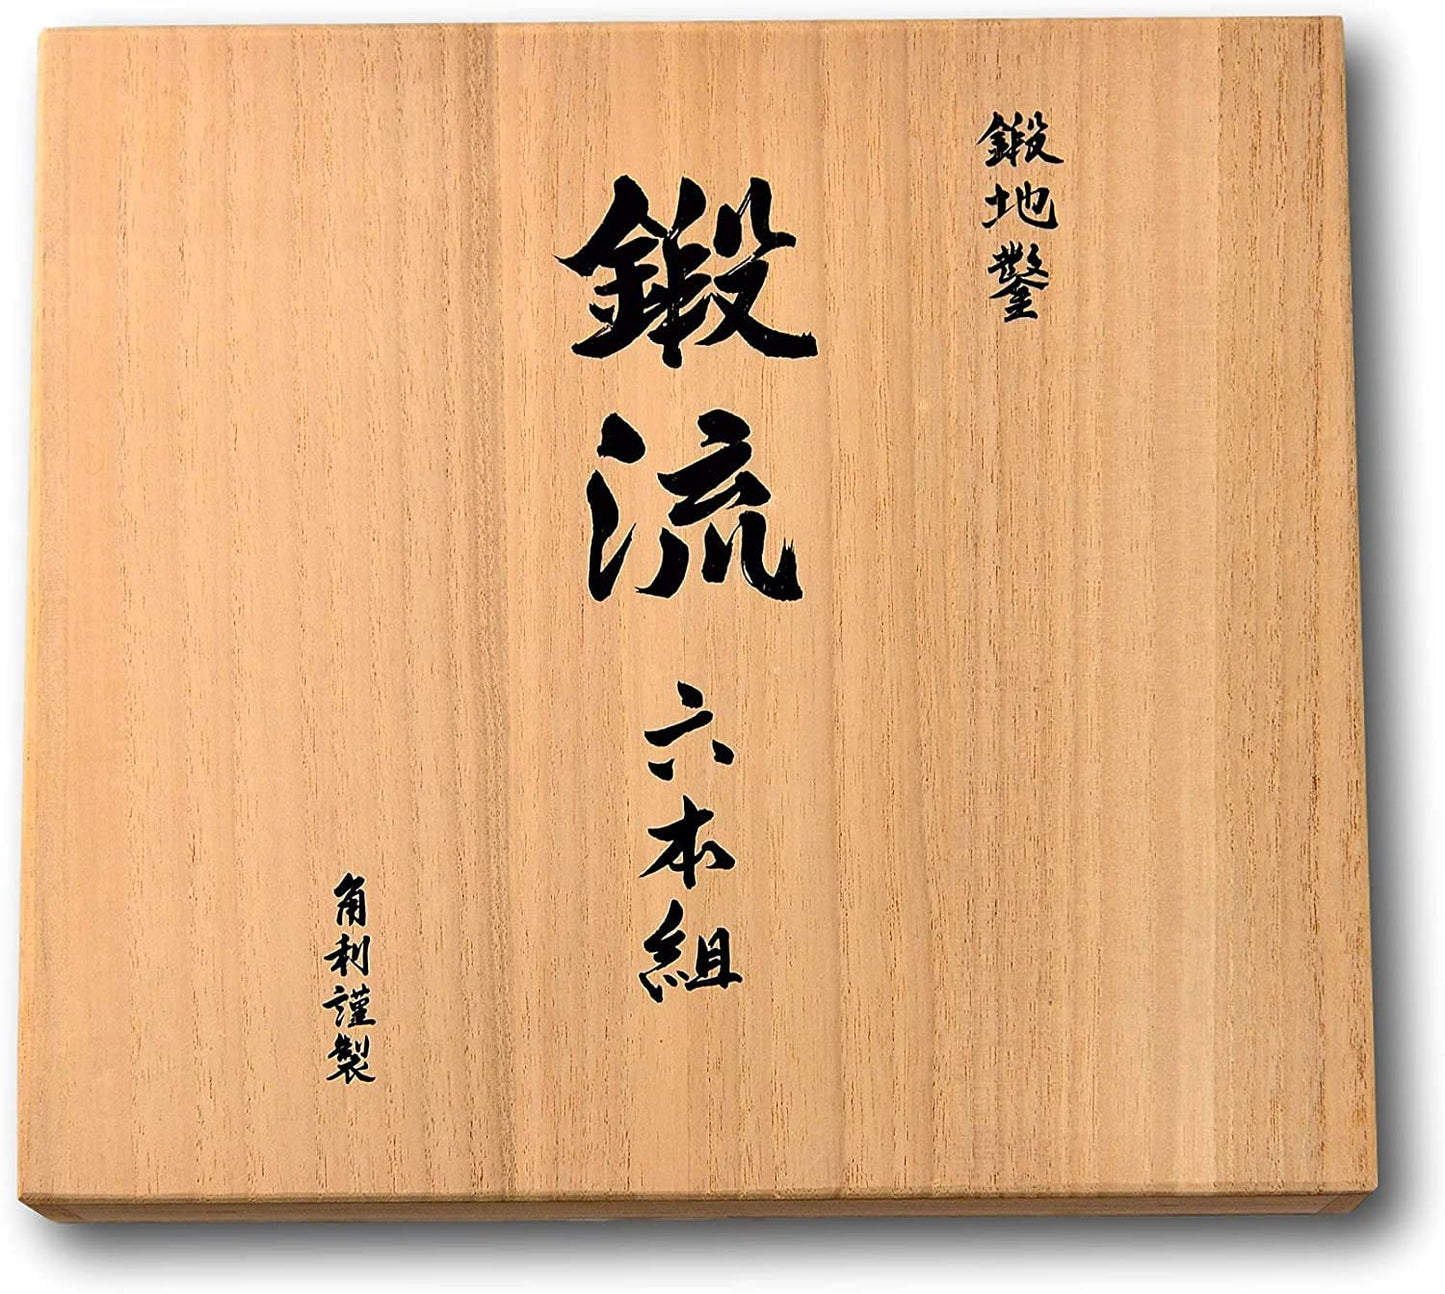 鍛地鑿
鍛流 六本組
角利謹製